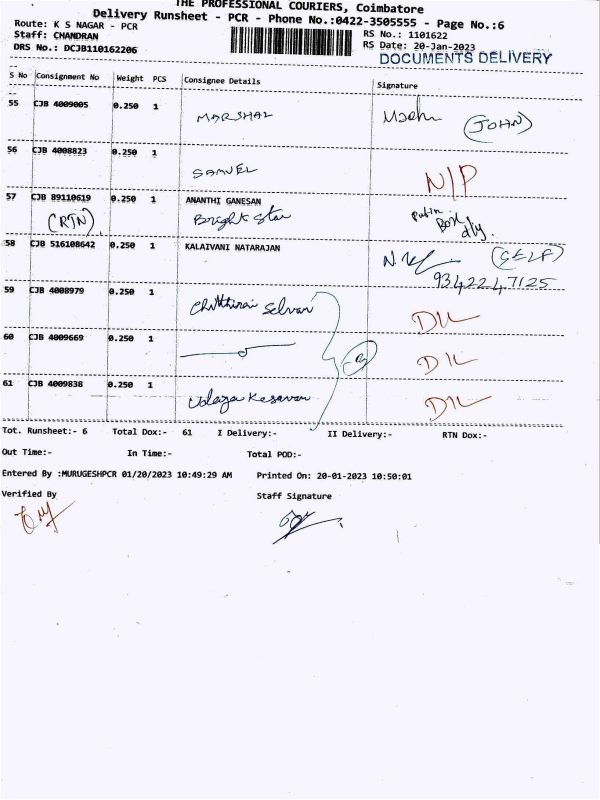 THE PROFESSIONAL COURIERS, Coimbatore
Delivery Runsheet - PCR - Phone No.:0422-3505555 - Page No.:6
Route: K S NAGAR - PCR
RS No.: 1101622
Staff: CHANDRAN
RS Date: 20-Jan-2023
DRS No.: DCJB110162206
DOCUMENTS DELIVERY
S No Consignment No Weight PCS Consignee Details Signature
55 CJB 4009005 0.250 1 MARSHAL (JOHN)
56 CJB 4008823 0.250 1 SAMUEL N/P
57 CJB 89110619 0.250 1 ANANTHI GANESAN
(RTN) Bright Star Put in Box dly.
58 CJB 516108642 0.250 1 KALAIVANI NATARAJAN (SELF)
9342247125
59 CJB 4008979 0.250 1 Chitthirai Selvan DIL
60 CJB 4009669 0.250 1 DIL
61 CJB 4009838 0.250 1 Udaya Kesavan DIL
Tot. Runsheet:- 6 Total Dox:- 61 I Delivery:- II Delivery:- RTN Dox:-
Out Time:- In Time:- Total POD:-
Entered By :MURUGESHPCR 01/20/2023 10:49:29 AM Printed On: 20-01-2023 10:50:01
Verified By Staff Signature